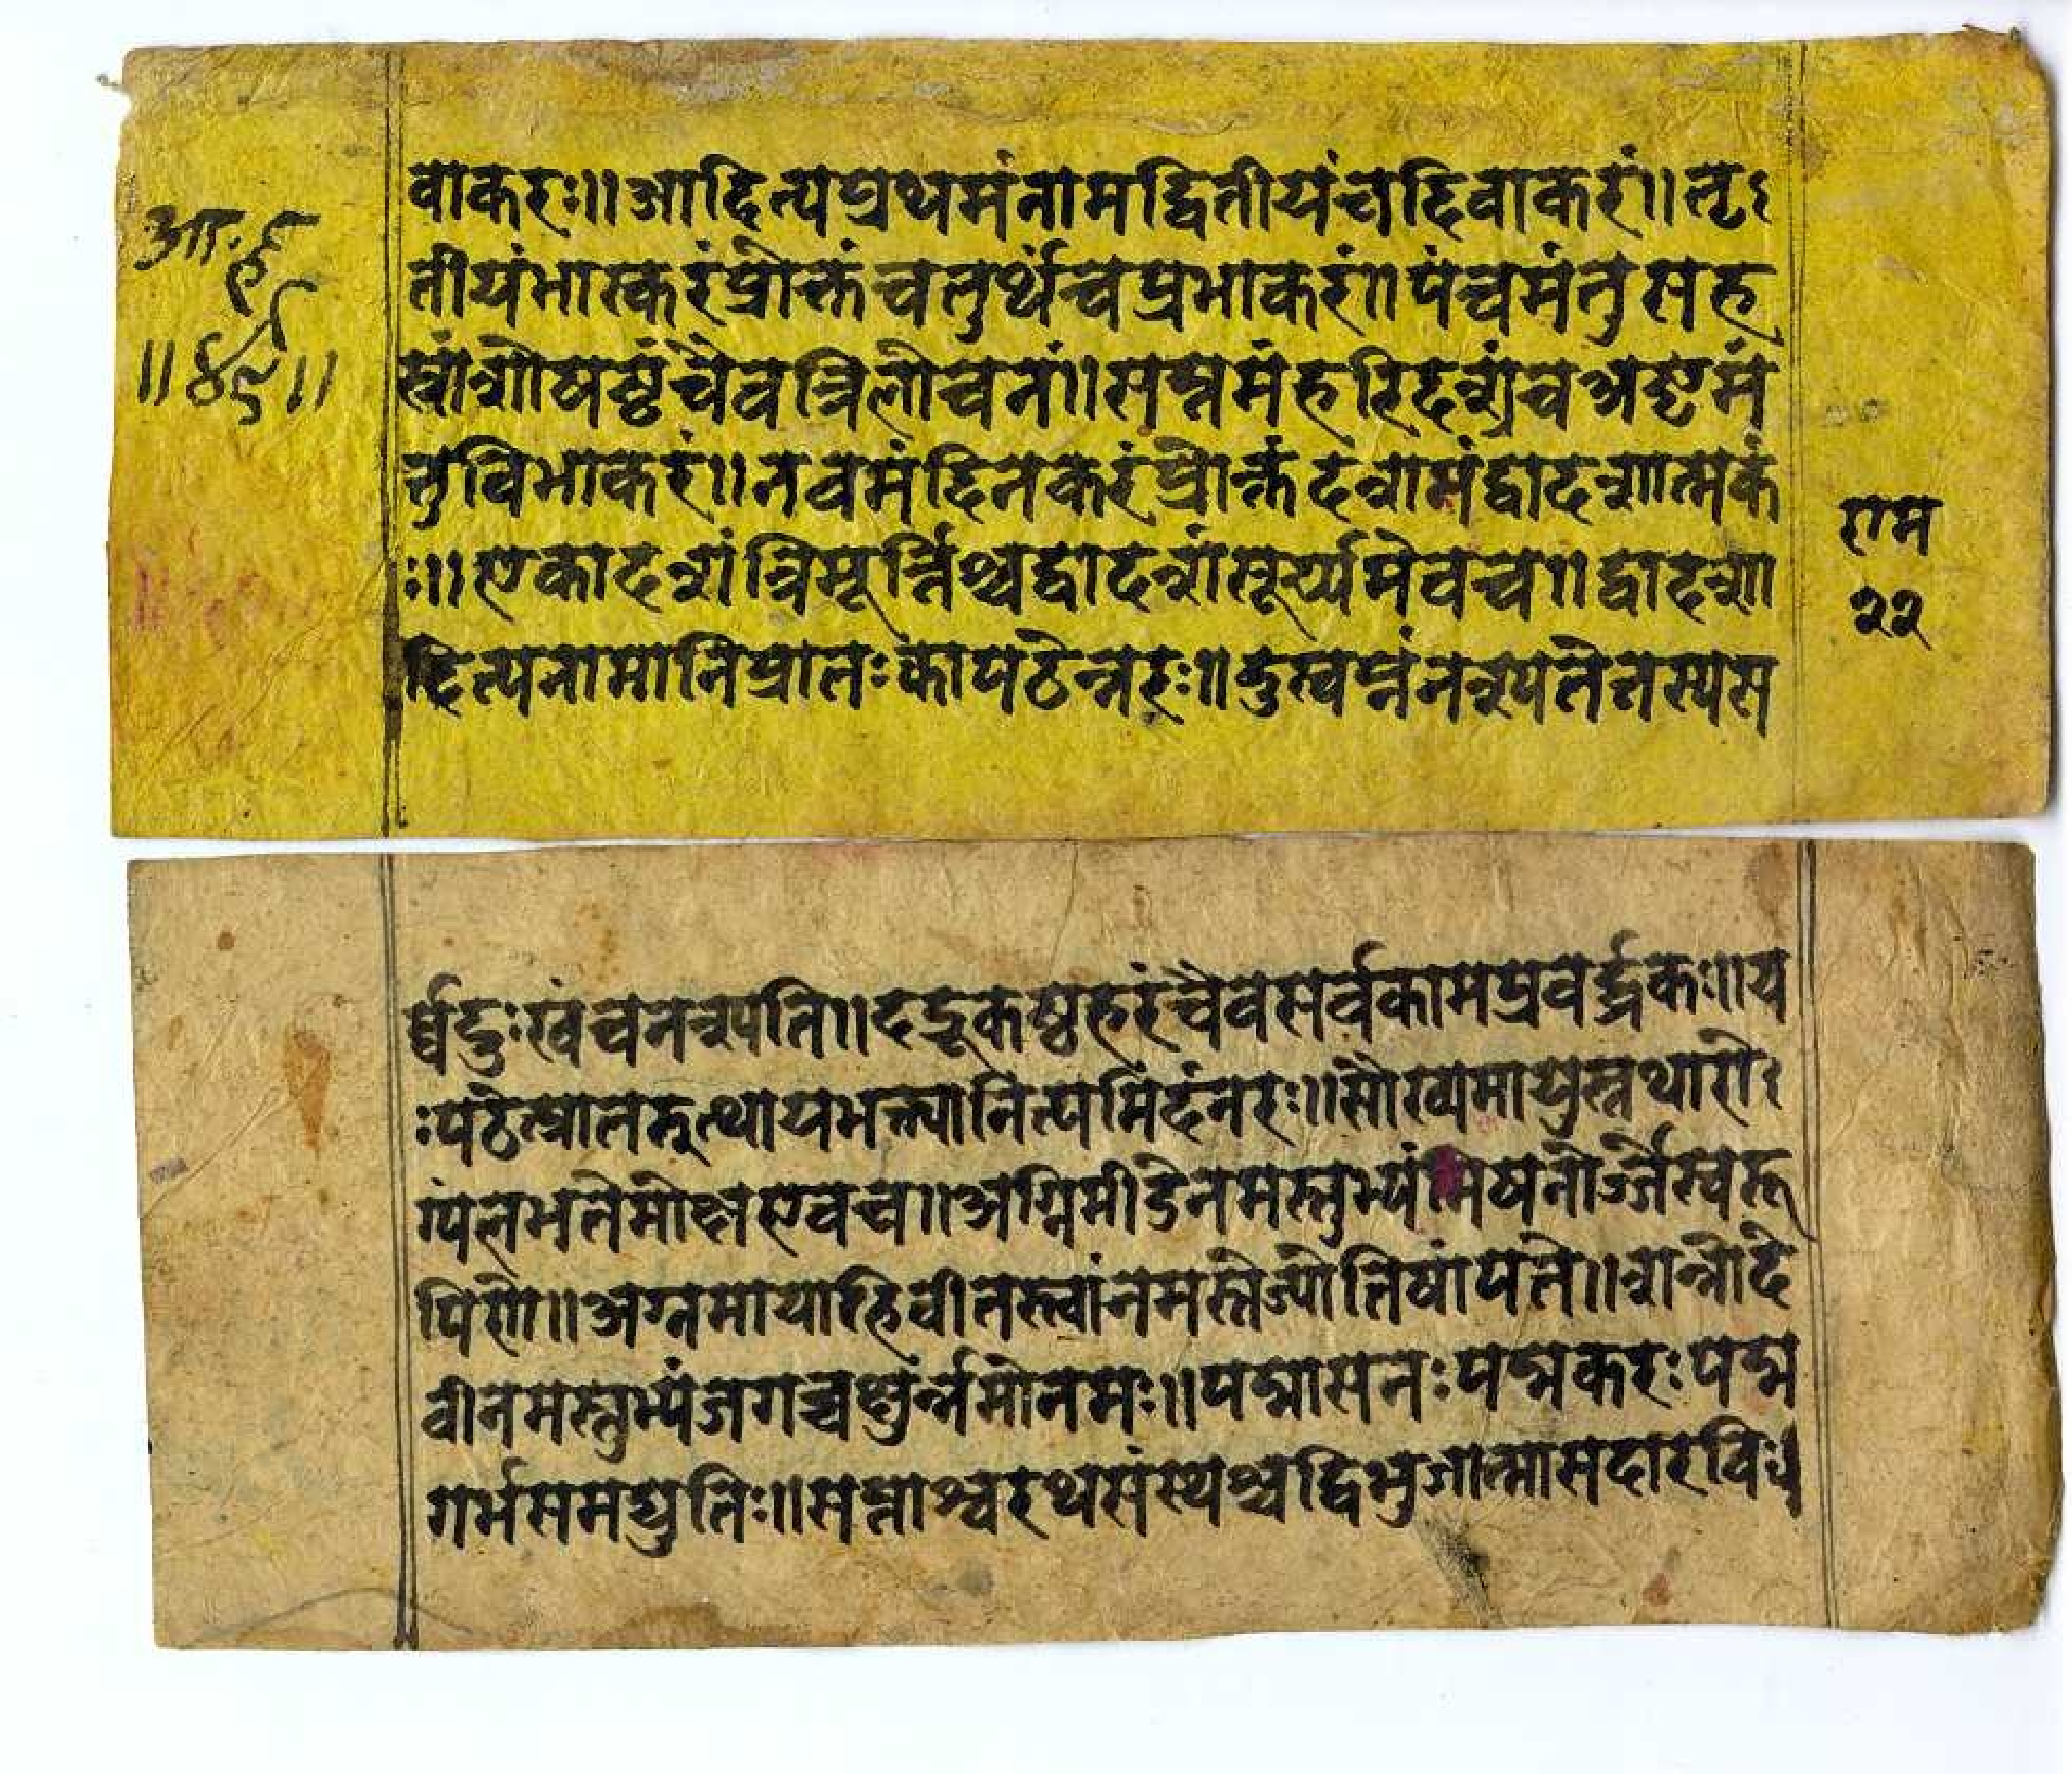 वाकरः॥आदित्यप्रथमंनामद्वितीयंचदिवाकरं॥तृ
तीयंभास्करंप्रोक्तंचतुर्थंचप्रभाकरं॥पंचमंतुसह
स्रांशोषष्ठंचैवत्रिलोचनं॥सप्तमंहरिदश्वंचअष्टमं
तुविभाकरं॥नवमंदिनकरंप्रोक्तंदशमंद्वादशात्मकं
ः॥एकादशंत्रिमूर्त्तिश्चद्वादशंसूर्य्यमेवच॥द्वादशा
दित्यनामानिप्रातःकापठेन्नरः॥दुस्वप्नंनश्यतेतस्यस
आ॰हृ
॥४९॥
राम
२२
र्व्वदुःखंचनश्यति॥दद्रूकष्ठहरंचैवसर्वकामप्रवर्द्धकः॥य
ःपठेत्प्रातरुत्थायभक्त्यानित्यमिदंनरः॥सौख्यमायुस्तथारो
ग्यंलभतेमोक्षएवच॥अग्निमीडेनमस्तुभ्यंमिषेत्नोर्ज्जेस्वरू
पिणे॥अग्नमायाहिवीतस्त्वांनमस्तेज्योतिषांपते॥शन्नोदे
वीनमस्तुभ्यंजगच्चक्षुर्न्नमोनमः॥पद्मासनःपद्मकरःपद्म
गर्भसमद्युतिः॥सप्ताश्वरथसंस्थश्चद्विभुजात्मासदारविः॥